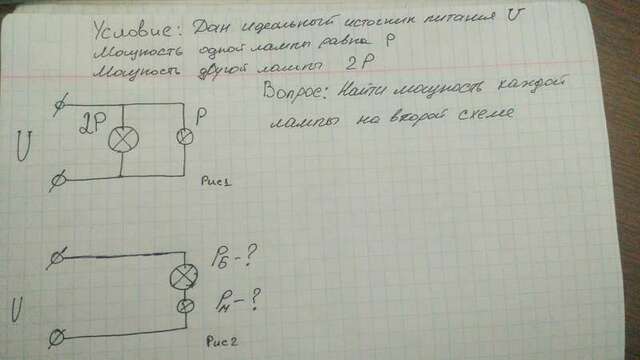 Условие: Дан идеальный источник питания U
Мощность одной лампы равна P
Мощность другой лампы 2P
Вопрос: Найти мощность каждой
лампы на второй схеме
U
2P
P
Рис1
U
Pб-?
Pм-?
Рис2